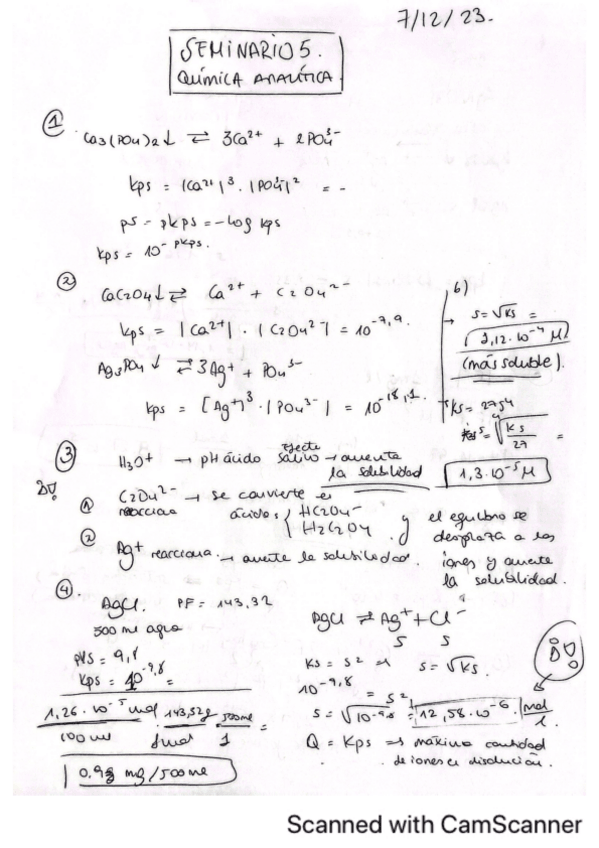 7/12/23.
SEMINARIO 5.
QUÍMICA ANALÍTICA.
①
Ca3(PO4)2↓ ⇄ 3Ca2+ + 2PO43-
kps = |Ca2+|3 · |PO43-|2 = -
ps - pkps = -log kps
kps = 10-pkps.
②
CaC2O4↓ ⇄ Ca2+ + C2O42-
kps = |Ca2+| · |C2O42-| = 10-7,9.
Ag3PO4↓ ⇄ 3Ag+ + PO43-
kps = [Ag+]3 · |PO43-| = 10-18,1.
b)
→ s = √Ks =
1,12·10-4 M
(más soluble).
Ks = 27s4
Ks
27
=
1,3·10-5 M
③ H3O+ → pH ácido efecto salino → aumenta
la solubilidad
① C2O42- → se convierte en
reacciona ácidos { HC2O4-
H2C2O4 y el equilibro se
desplaza a los
iones y aumente
la solubilidad.
② Ag+ reacciona → aumente la solubilidad.
④ AgCl. PF = 143,32
500 ml agua
pKs = 9,8
Kps = 10-9,8 =
1,26·10-5 mol · 143,32g · 500ml
1000 ml 1mol 1 =
0.93 mg/500ml
AgCl ⇄ Ag+ + Cl-
s s
Ks = s2 ⇒ s = √Ks.
10-9,8 = s2
s = √10-9,8 = 12,58·10-6 mol
l.
Q = Kps ⇒ máxima cantidad
de iones en disolución.
Scanned with CamScanner